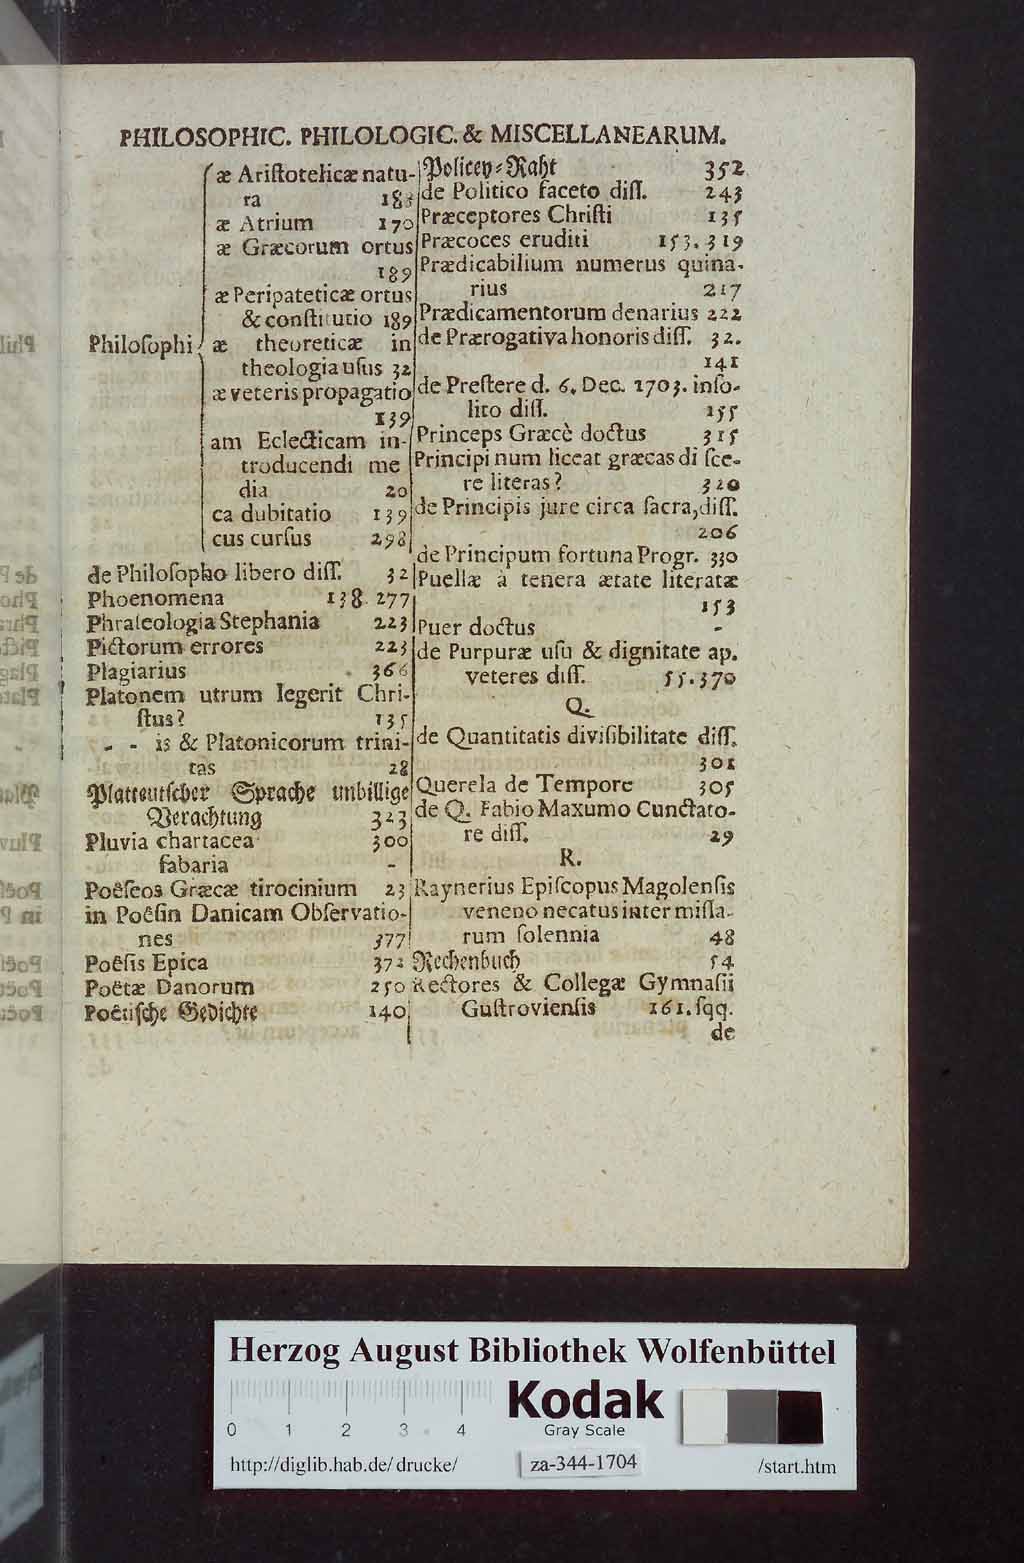 PHILOSOPHIC. PHILOLOGIC. & MISCELLANEARUM.
Philoſophi
æ Ariſtotelicæ natu-
ra 183
æ Atrium 170
æ Græcorum ortus
189
æ Peripateticæ ortus
& conſtitutio 189
æ theoreticæ in
theologia uſus 32
æ veteris propagatio
139
am Eclecticam in-
troducendi me
dia 20
ca dubitatio 139
cus curſus 298
de Philoſopho libero diſſ. 32
Phoenomena 138. 277
Phraſeologia Stephania 223
Pictorum errores 223
Plagiarius 366
Platonem utrum legerit Chri-
ſtus? 135
- - is & Platonicorum trini-
tas 28
Platteutſcher Sprache unbillige
Verachtung 323
Pluvia chartacea 300
fabaria -
Poëſeos Græcæ tirocinium 23
in Poëſin Danicam Obſervatio-
nes 377
Poëſis Epica 372
Poëtæ Danorum 250
Poëtiſche Gedichte 140
Policey-Raht 352
de Politico faceto diſſ. 243
Præceptores Chriſti 135
Præcoces eruditi 153. 319
Prædicabilium numerus quina-
rius 217
Prædicamentorum denarius 222
de Prærogativa honoris diſſ. 32.
141
de Preſtere d. 6. Dec. 1703. inſo-
lito diſſ. 155
Princeps Græcè doctus 315
Principi num liceat græcas di ſce-
re literas? 320
de Principis jure circa ſacra, diſſ.
206
de Principum fortuna Progr. 330
Puellæ à tenera ætate literatæ
153
Puer doctus -
de Purpuræ uſu & dignitate ap.
veteres diſſ. 55. 370
Q.
de Quantitatis diviſibilitate diſſ.
301
Querela de Tempore 305
de Q. Fabio Maxumo Cunctato-
re diſſ. 29
R.
Raynerius Epiſcopus Magolenſis
veneno necatus inter miſſa-
rum ſolennia 48
Rechenbuch 54
Rectores & Collegæ Gymnaſii
Guſtrovienſis 161. ſqq.
de
Herzog August Bibliothek Wolfenbüttel
0 1 2 3 4
Kodak
Gray Scale
http://diglib.hab.de/drucke/ za-344-1704 /start.htm